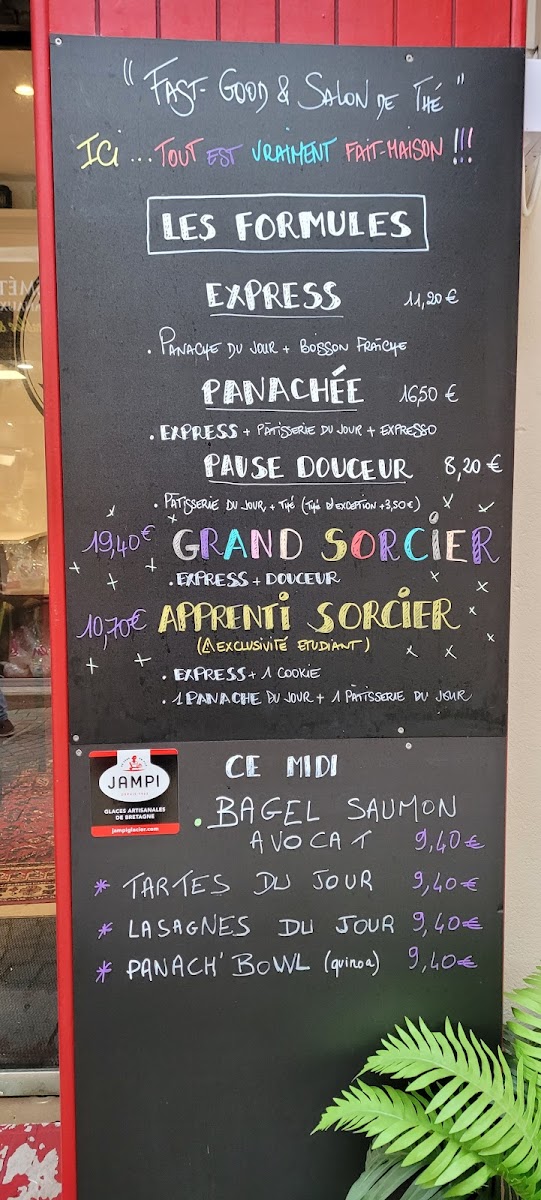 " FAST-GOOD & SALON DE THÉ "
ICI ... TOUT EST VRAIMENT FAIT-MAISON !!!
LES FORMULES
EXPRESS 11,20 €
. PANACHE DU JOUR + BOISSON FRAÎCHE
PANACHÉE 16,50 €
. EXPRESS + PÂTISSERIE DU JOUR + EXPRESSO
PAUSE DOUCEUR 8,20 €
. PÂTISSERIE DU JOUR + THÉ (THÉ D'EXCEPTION +3,50€)
19,40€ GRAND SORCIER
. EXPRESS + DOUCEUR
10,70€ APPRENTI SORCIER
(⚠ EXCLUSIVITÉ ETUDIANT)
. EXPRESS + 1 COOKIE
. 1 PANACHE DU JOUR + 1 PATISSERIE DU JOUR
JAMPI
GLACES ARTISANALES
DE BRETAGNE
jampiglacier.com
CE MIDI
. BAGEL SAUMON
AVOCAT 9,40€
* TARTES DU JOUR 9,40€
* LASAGNES DU JOUR 9,40€
* PANACH' BOWL (quinoa) 9,40€